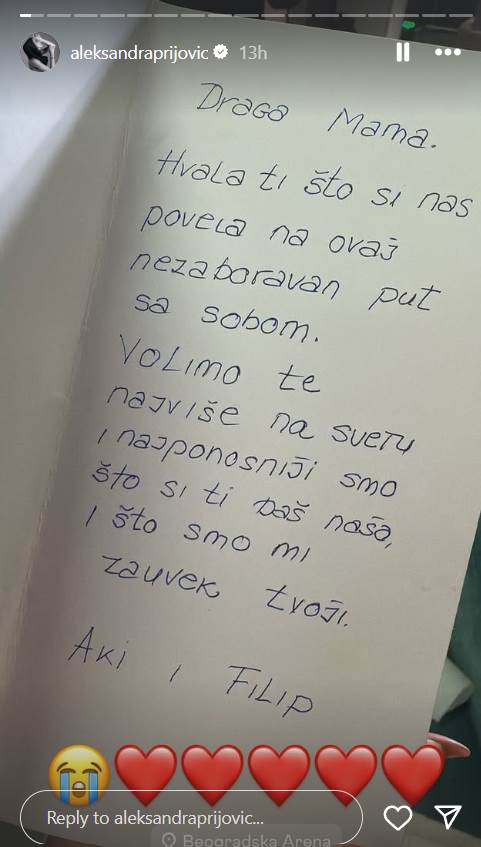 aleksandraprijovic 13h
Draga Mama.
Hvala ti što si nas
povela na ovaj
nezaboravan put
sa sobom.
Volimo te
najviše na svetu
i najponosniji smo
što si ti baš naša,
i što smo mi
zauvek tvoji.
Aki i Filip
Reply to aleksandraprijovic...
Beogradska Arena